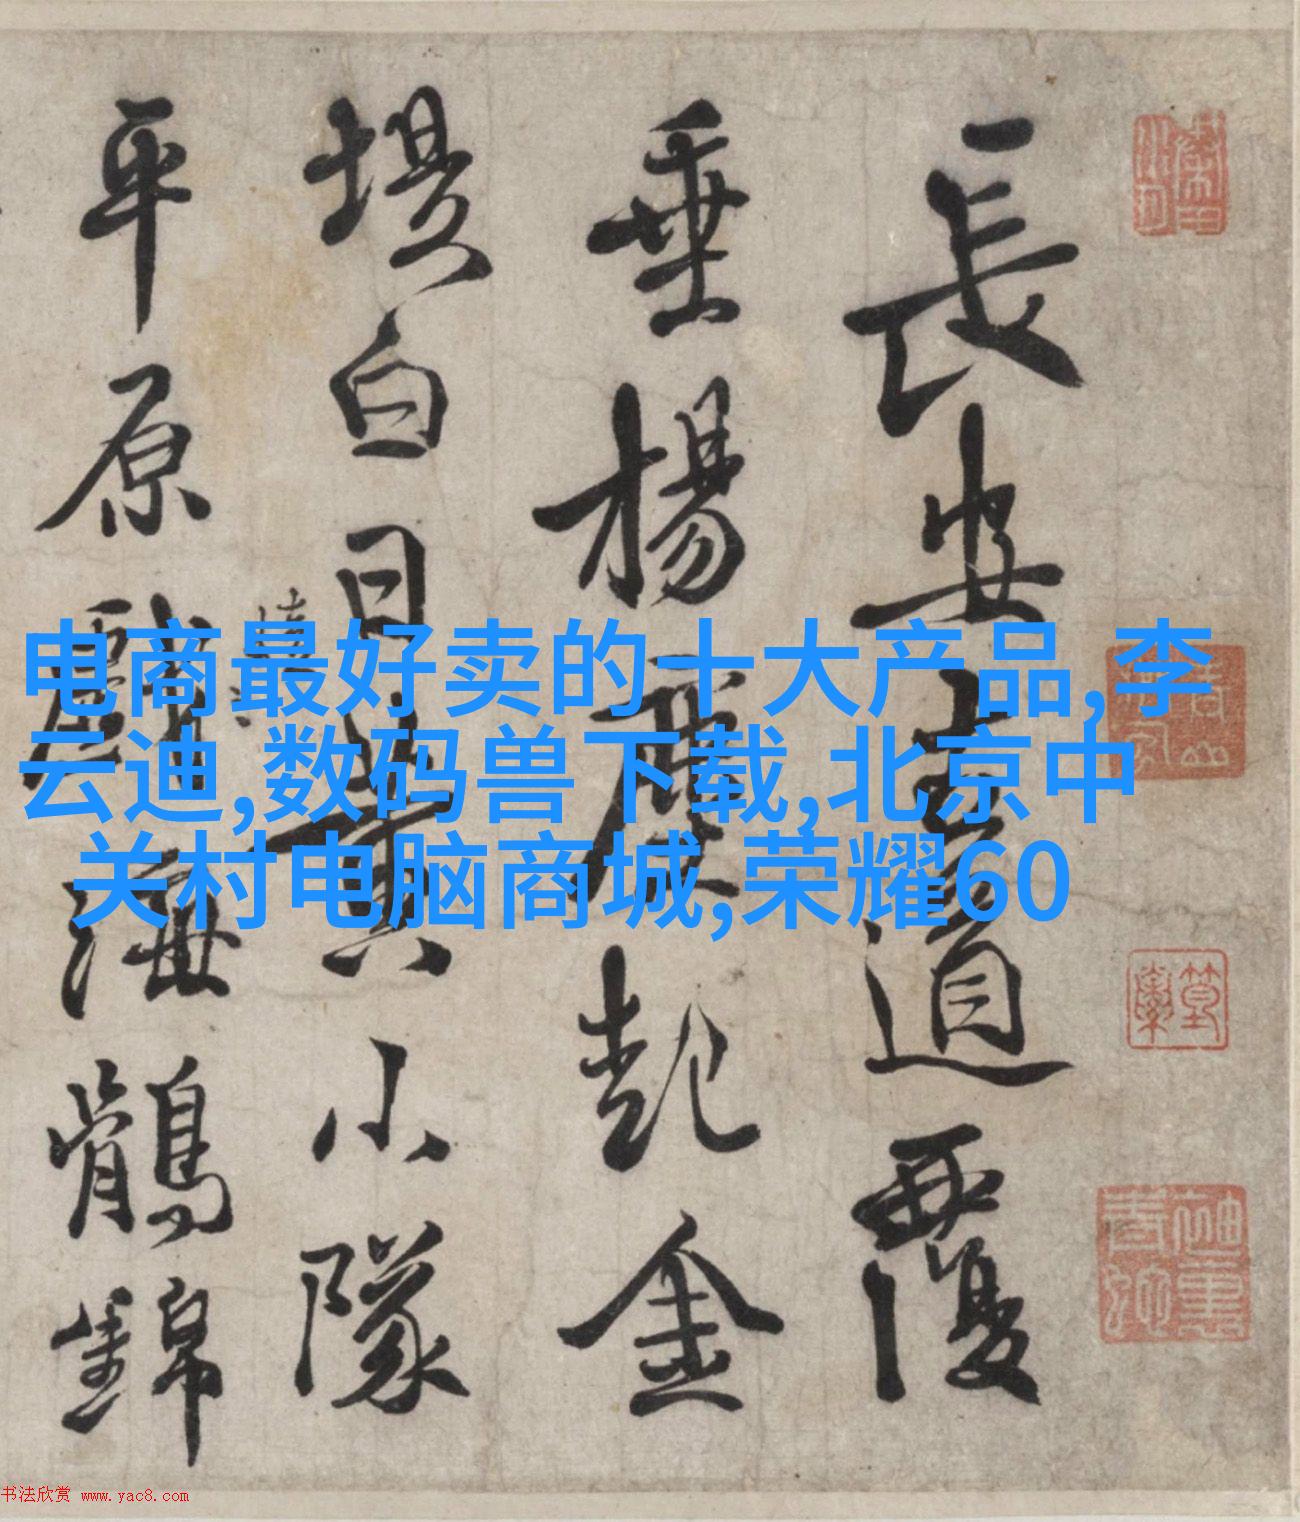 電商最好卖的十大产品,李
云迪,数码兽下载,北京中
关村电脑商城,荣耀60
長安道覆
垂楊起金
堤白日小隊
平原戲海鶻錦
书法欣赏 www.yac8.com